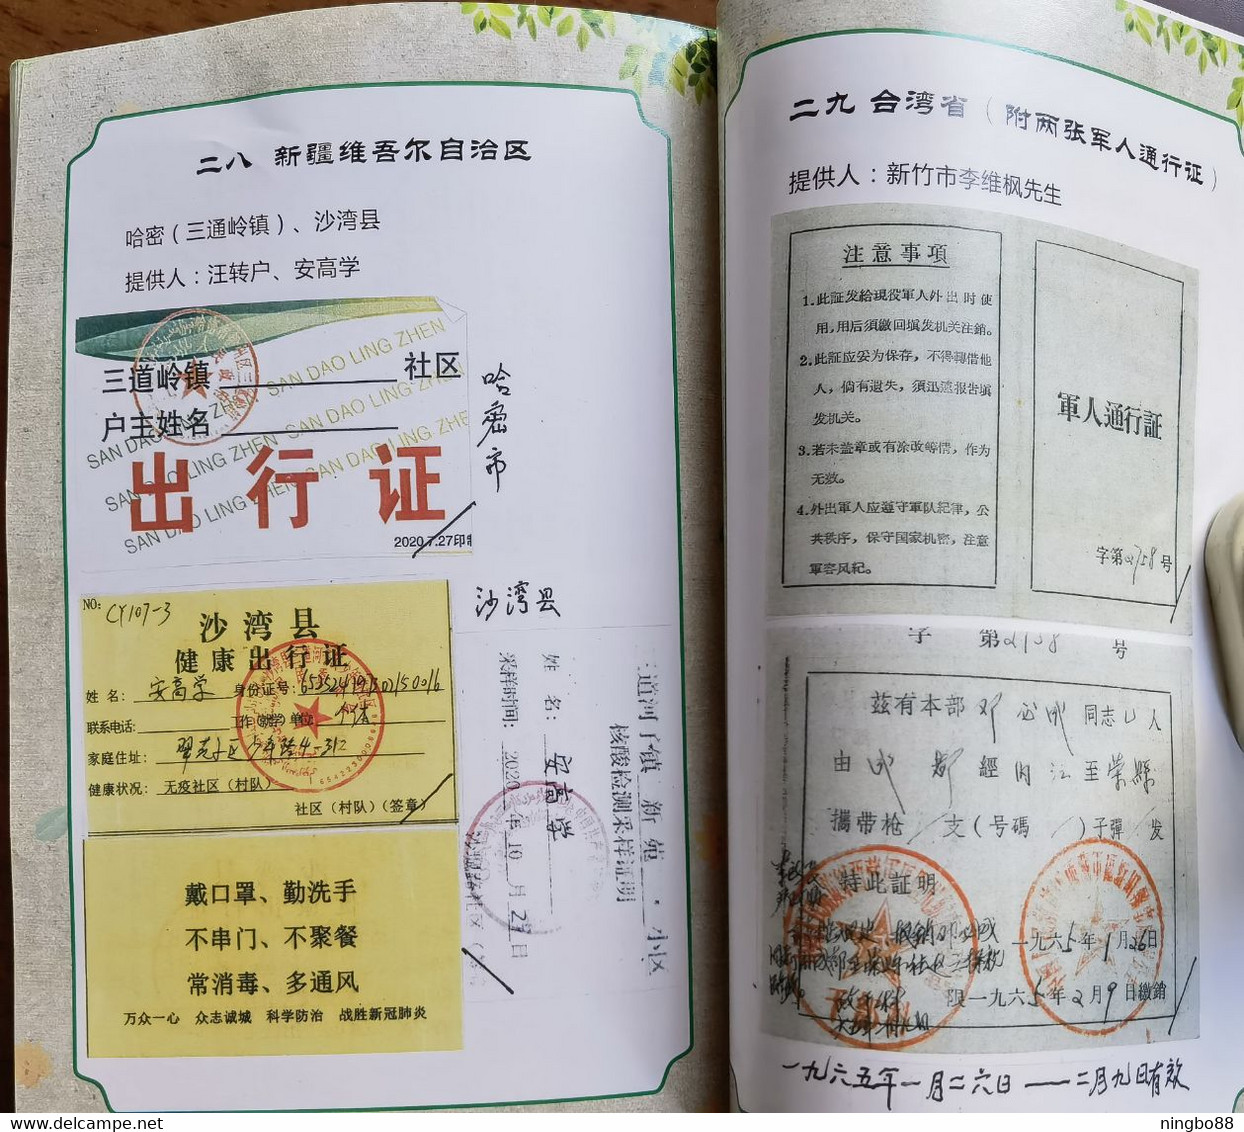 二八 新疆维吾尔自治区
哈密（三通岭镇）、沙湾县
提供人：汪转户、安高学
三道岭镇 社区
户主姓名
SAN DAO LING ZHEN
SAN DAO LING ZHEN
SAN DAO LING ZHEN SAN DAO LING ZHEN
SAN DAO LING ZHEN SAN DAO LING ZHE
SAN DAO LING ZHEN
出行证
2020.7.27印制
哈密市
NO: CY107-3
沙湾县
健康出行证
姓名： 安高学 身份证号：
联系电话： 工作（就学）单位： 个体
家庭住址： 4-312
健康状况： 无疫社区（村队）
社区（村队）（签章）
戴口罩、勤洗手
不串门、不聚餐
常消毒、多通风
万众一心 众志诚城 科学防治 战胜新冠肺炎
沙湾县
三道河子镇 新苑 小区
核酸检测采样证明
姓名： 安高学
采样时间： 2020年10月27日
二九 台湾省（附两张军人通行证）
提供人：新竹市李维枫先生
注意事項
1.此証发給現役軍人外出时使
用，用后須繳回填发机关注銷。
2.此証应妥为保存，不得轉借他
人，倘有遺失，須迅速报告填
发机关。
3.若未盖章或有涂改等情，作为
无效。
4.外出軍人应遵守軍队紀律，公
共秩序，保守国家机密，注意
軍容风紀。
軍人通行証
字第2758号
字 第2758 号
茲有本部 邓 成 同志 人
由 成都 經 内江 至 荣縣
攜带枪 支（号碼 ）子彈 发
特此証明
一九六5年1月26日
限一九六5年2月9日繳銷
一九六五年一月二六日——二月九日有效
ningbo88